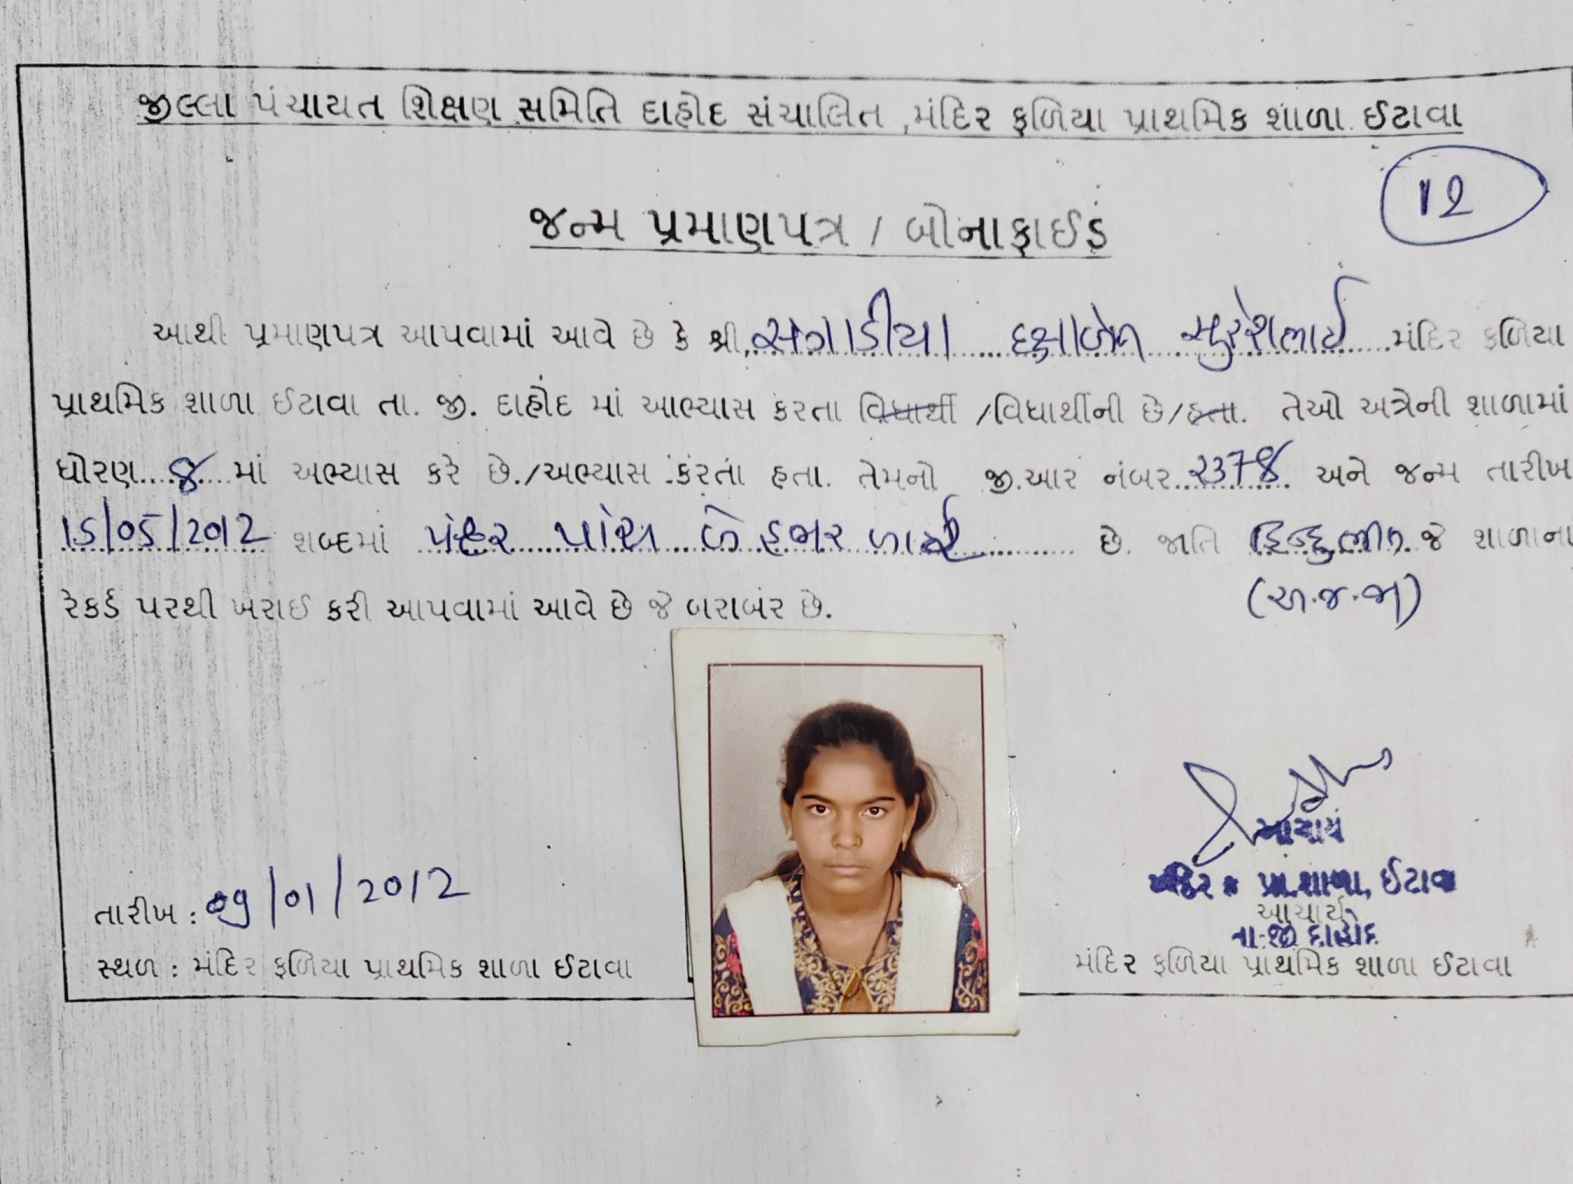 જીલ્લા પંચાયત શિક્ષણ સમિતિ દાહોદ સંચાલિત ,મંદિર ફળિયા પ્રાથમિક શાળા ઈટાવા
12
જન્મ પ્રમાણપત્ર / બોનાફાઈડ
આથી પ્રમાણપત્ર આપવામાં આવે છે કે શ્રી, સંગાડીયા દક્ષાબેન સુરેશભાઈ મંદિર ફળિયા
પ્રાથમિક શાળા ઈટાવા તા. જી. દાહોદ માં આભ્યાસ કરતા વિધાર્થી /વિધાર્થીની છે/હતા. તેઓ અત્રેની શાળામાં
ધોરણ...૪...માં અભ્યાસ કરે છે./અભ્યાસ કરતાં હતા. તેમનો જી.આર નંબર..૨૩૭૪.. અને જન્મ તારીખ
15/05/2012 શબ્દમાં પંદર પાંચ બે હજાર બાર છે. જાતિ હિન્દુભીલ જે શાળાના
(અ.જ.જા)
રેકર્ડ પરથી ખરાઈ કરી આપવામાં આવે છે જે બરાબર છે.
આચાર્ય
મંદિર ફ પ્રા.શાળા, ઈટાવા
તારીખ : 09/01/2012
આચાર્ય
તા.જી દાહોદ
સ્થળ : મંદિર ફળિયા પ્રાથમિક શાળા ઈટાવા
મંદિર ફળિયા પ્રાથમિક શાળા ઈટાવા